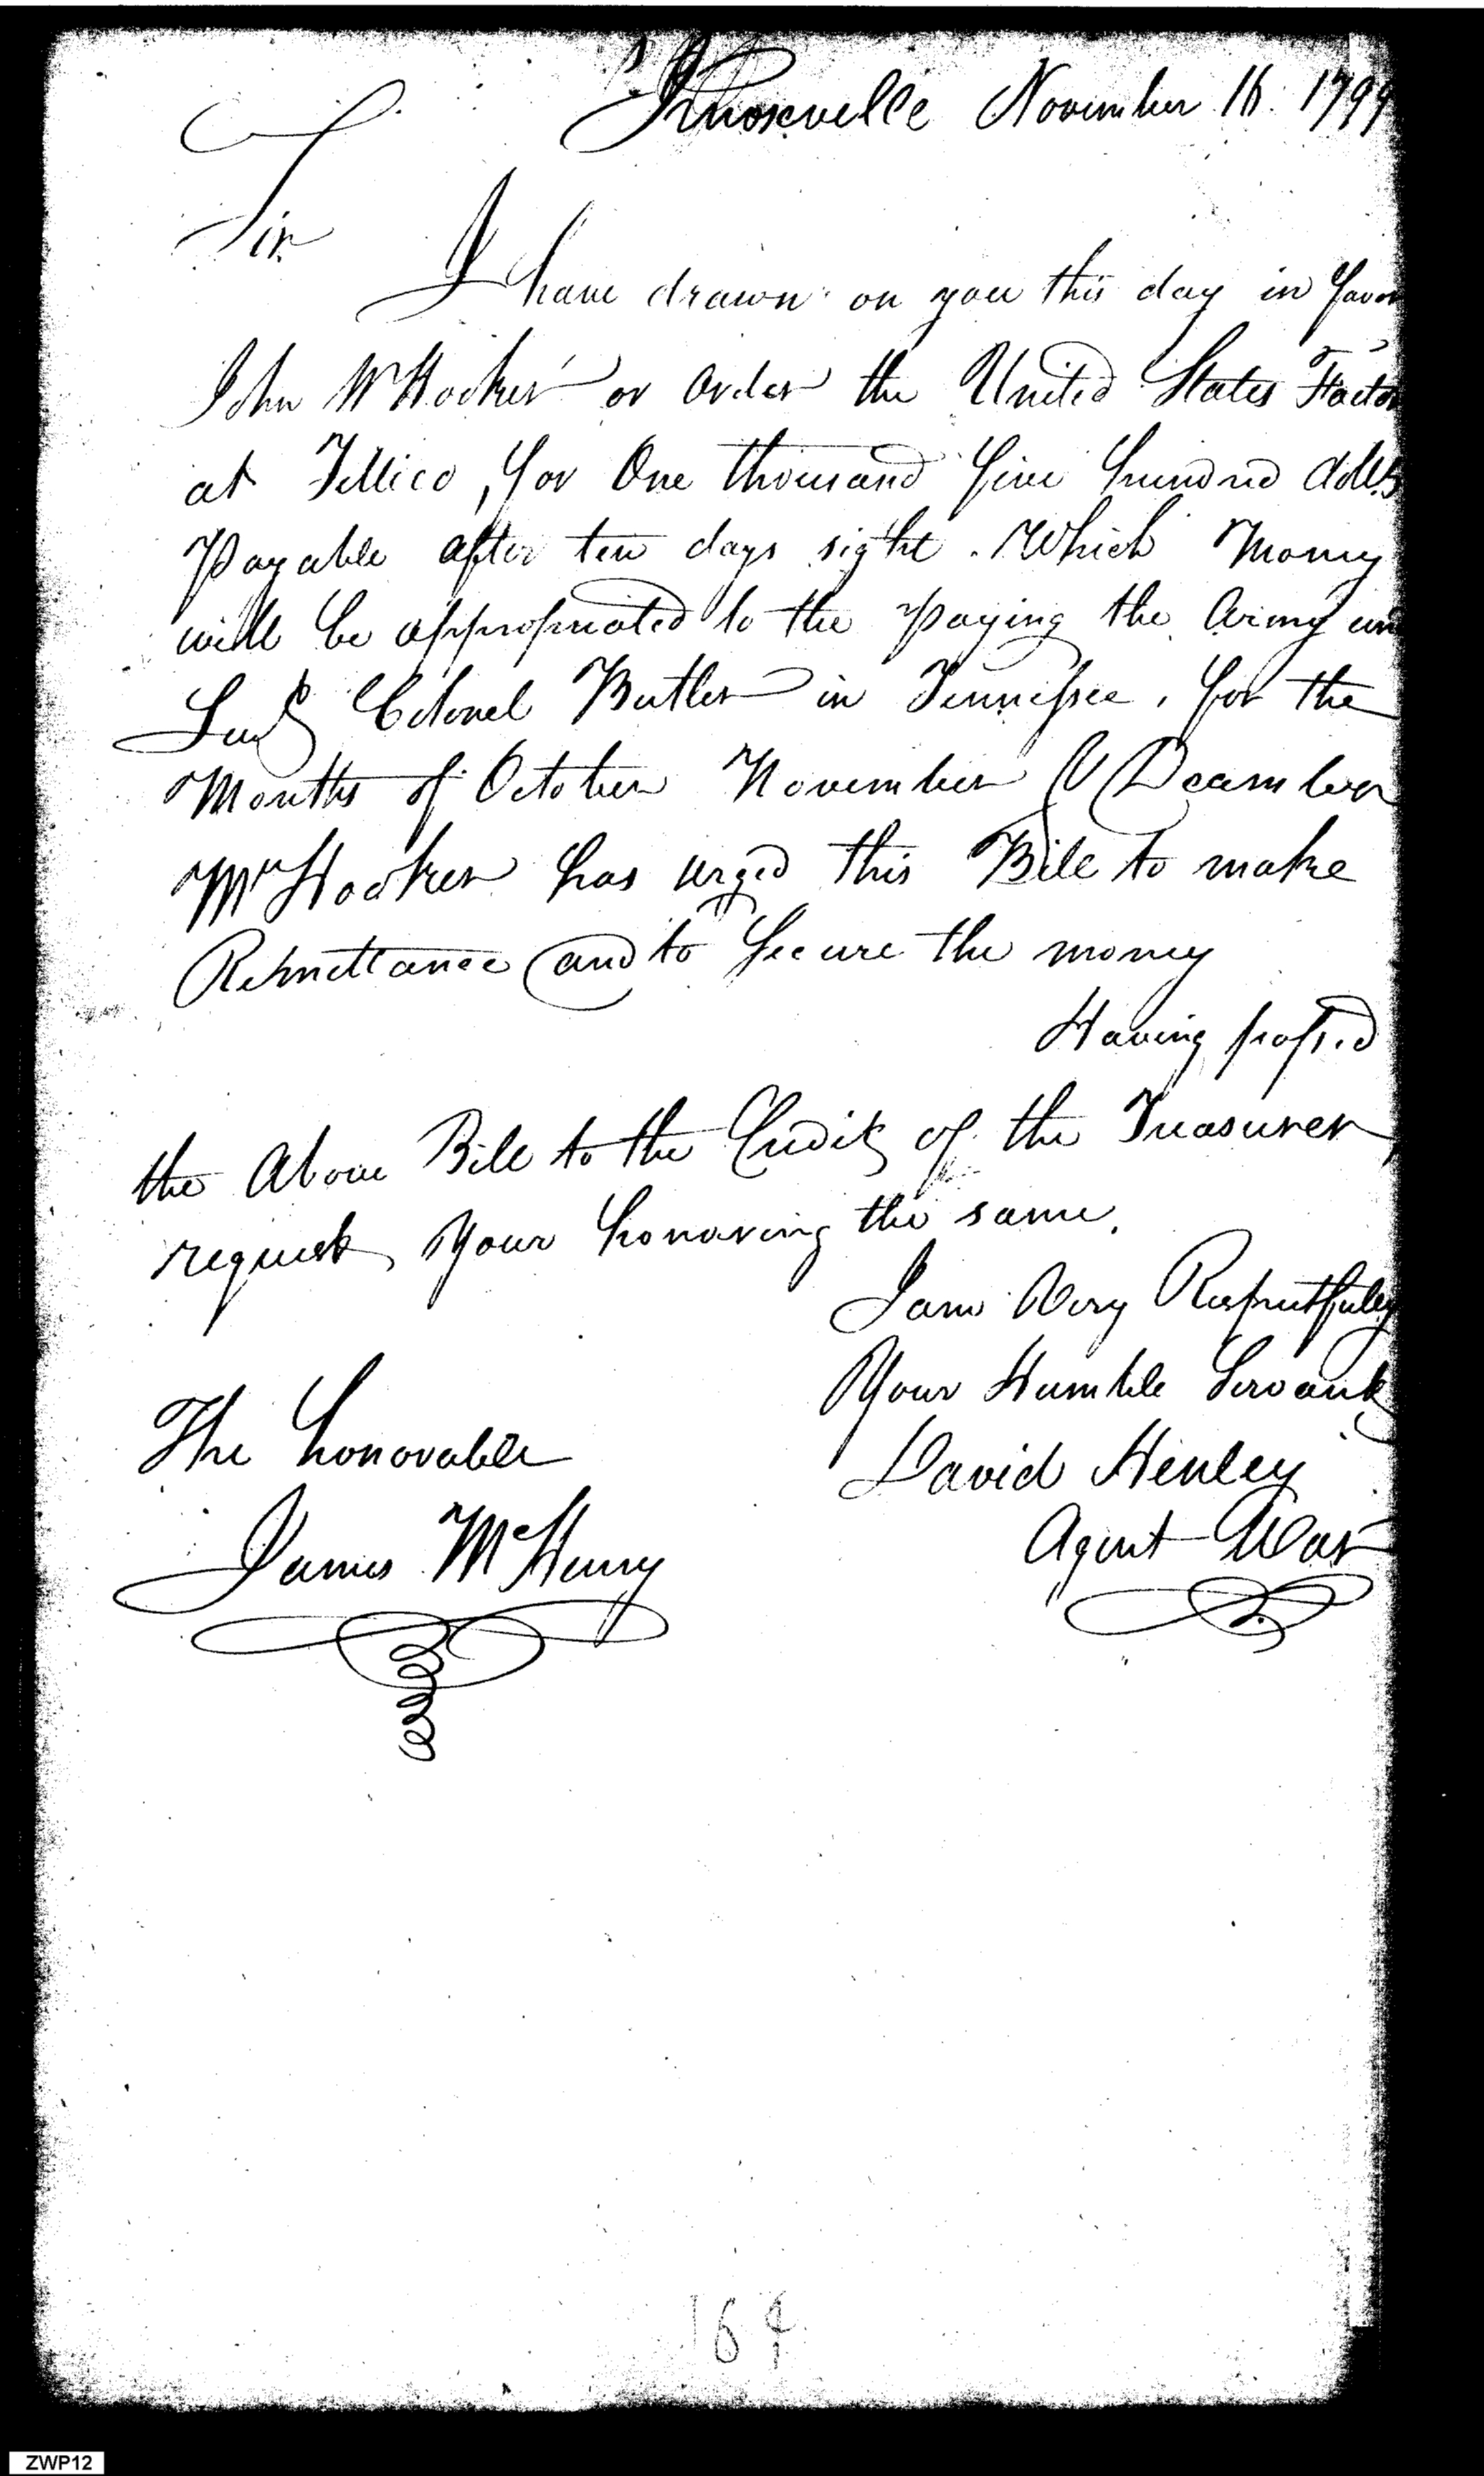 Knoxville November 16. 1799
Sir
I have drawn on you this day in favor
John W Hooker or order the United States Factor
at Tellico, for One thousand five hundred doll.s
Payable after ten days sight. Which Money
will be appropriated to the paying the Army un
Colonel Butler in Tennessee, for the
Months of October November & December
Mr Hooker has urged this Bill to make
Remittance and to secure the money
Having passed
the above Bill to the Credit of the Treasurer,
request your honoring the same.
I am Very Respectfully
Your Humble Servant
David Henley
Agent War
The honorable
James McHenry
164
ZWP12